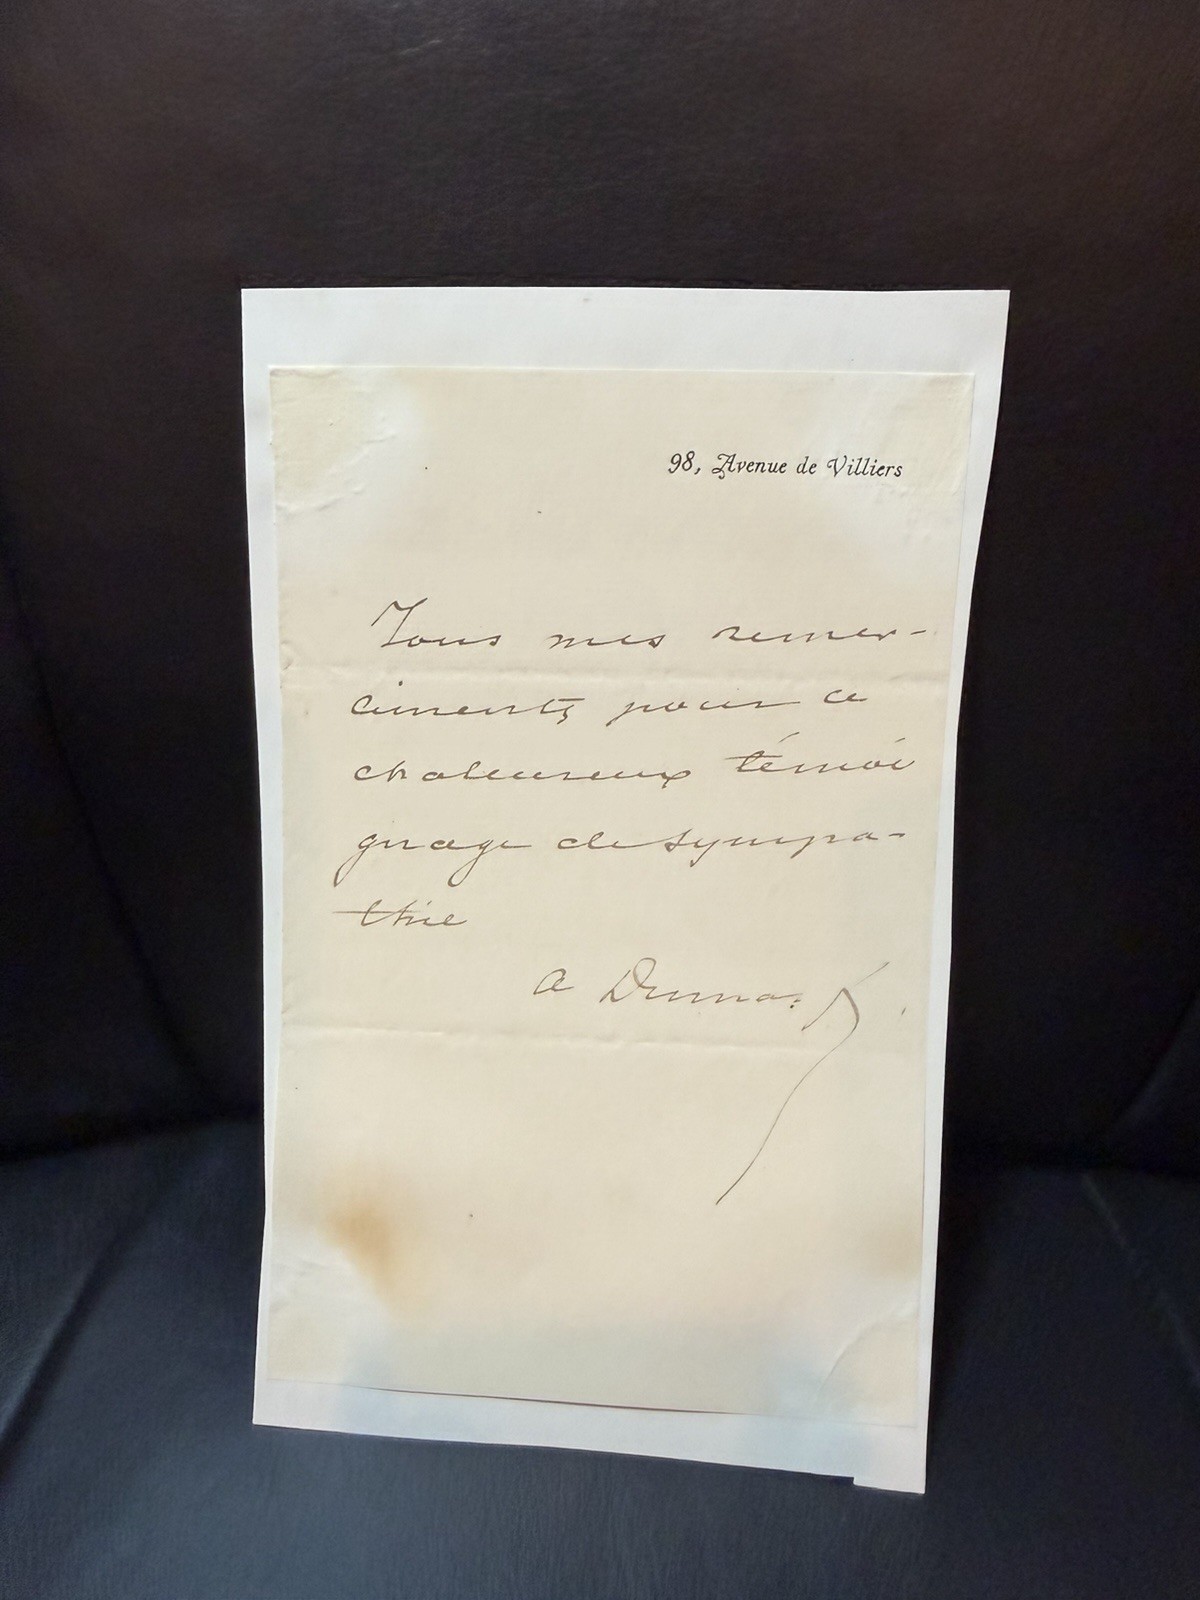 98, Avenue de Villiers
Tous mes remer-
ciments pour ce
chaleureux témoi
gnage de sympa-
thie
A Dumas